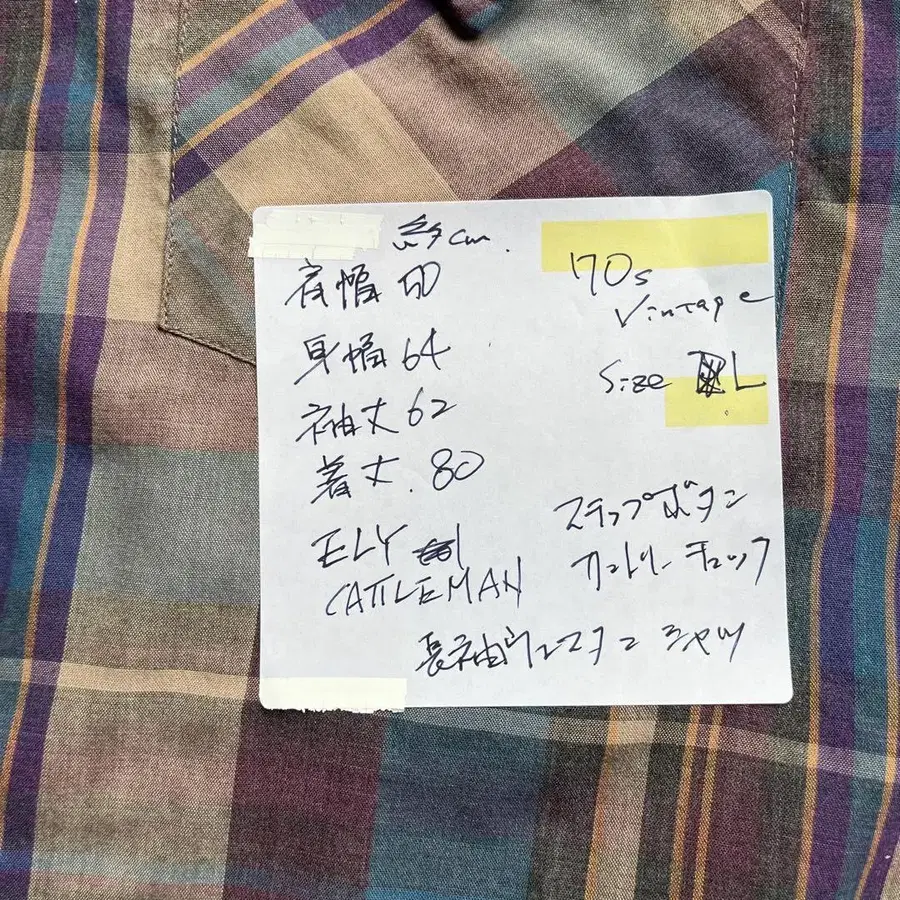 約cm.
肩幅 50
身幅 64
袖丈 62
着丈. 80
ELY
CATTLEMAN
'70s
Vintage
Size L
スナップボタン
カントリーチェック
長袖ウエスタンシャツ